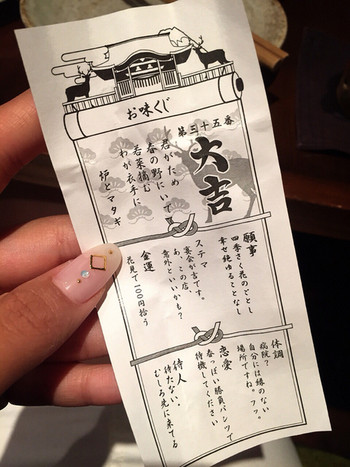 お味くじ
第三十五番
大吉
君がため
春の野にいで
若菜摘む
わが衣手に
鹿とマタギ
願事
四季さく花のごとし
幸せ絶ゆることなし
ステマ
宴会が吉です。
あ、この店、
意外といいかも?
金運
花見で100円拾う
体調
病院?
自分には縁のない
場所ですね。フッ。
恋愛
春っぽい勝負パンツで
待機してください
待人
待たない。
むしろ先に来てる